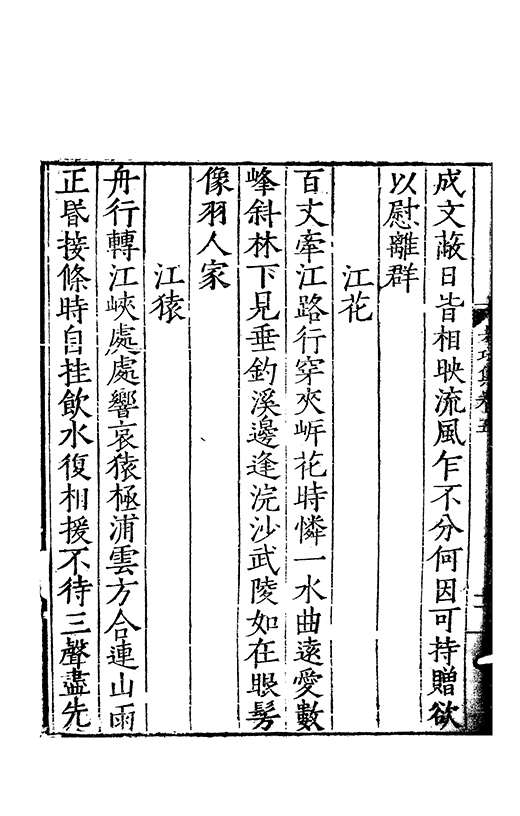 集卷五
成文蔽日皆相映流風乍不分何因可持贈欲
以慰離群
江花
百丈牽江路行穿夾岍花時憐一水曲遠愛數
峰斜林下見垂釣溪邊逢浣沙武陵如在眼髣
像羽人家
江猿
舟行轉江峽處處響哀猿極浦雲方合連山雨
正昬接條時自挂飲水復相援不待三聲盡先